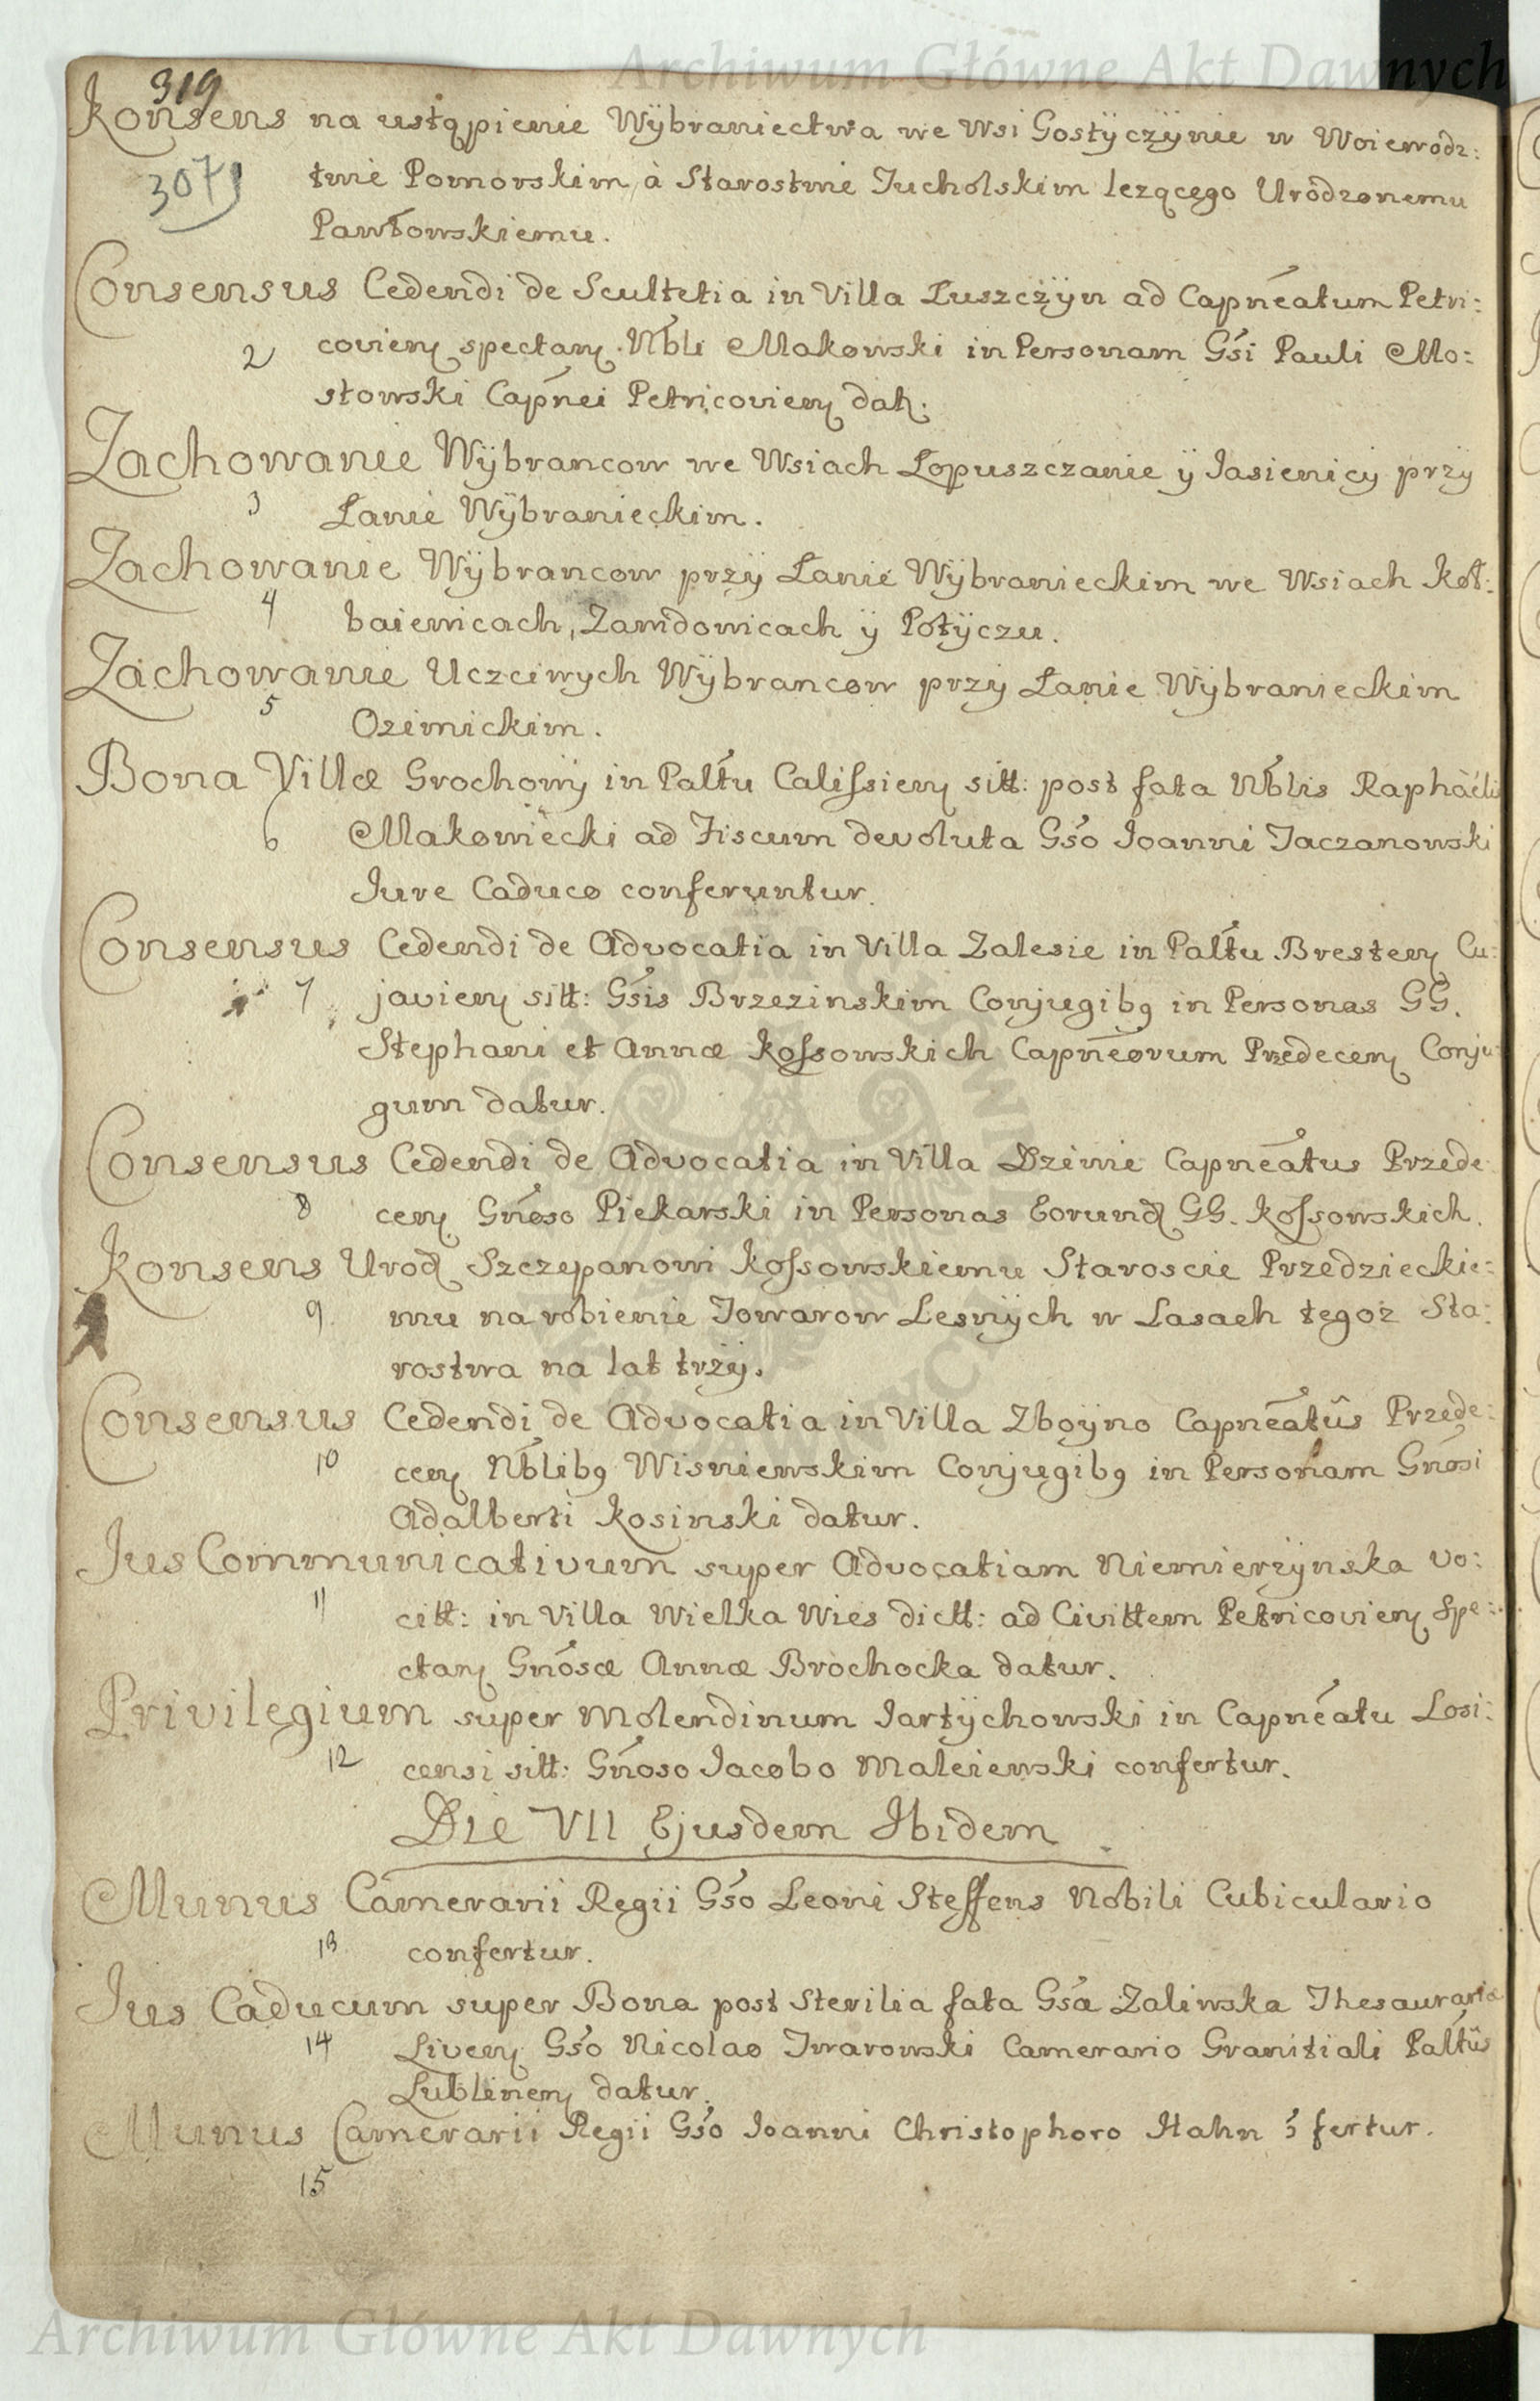 Archiwum Główne Akt Dawnych
319
Konsens na ustąpienie Wÿbraniectwa we Wsi Gostÿczÿnie w Woiewodz:
307
twie Pomorskim, à Starostwie Tucholskim lezącego Urodzonemu
Pawłowskiemu.
Consensus Cedendi de Scultetia in Villa Łuszczÿn ad Capneatum Petri:
2 covien spectan. Nbli Makowski in Personam Gsi Pauli Mo:
stowski Capnei Petricovien dat:
Zachowanie Wÿbrancow we Wsiach Łopuszczanie ÿ Jasienicÿ przÿ
3 Łanie Wÿbranieckim.
Zachowanie Wÿbrancow przÿ Łanie Wÿbranieckim we Wsiach Koł:
4 baiewicach, Zawidowicach ÿ Potÿczu.
Zachowanie Uczciwych Wÿbrancow przÿ Łanie Wÿbranieckim
5 Ozimickim.
Bona Villæ Grochowÿ in Palttu Calissien sitt: post fata Nblis Raphaëlis
6 Makowiecki ad Fiscum devoluta Gso Joanni Taczanowski
Jure Caduco conferuntur.
Consensus Cedendi de Advocatia in Villa Zalesie in Palttu Bresten Cu:
7 javien sitt: Gsis Brzezinskim Conjugibq in Personas GG.
Stephani et Annæ Kossowskich Capneorum Przedecen Conju:
gum datur.
Consensus Cedendi de Advocatia in Villa Dziwie Capneatus Przede
8 cen Gnoso Piekarski in Personas Eorund GG. Kossowskich.
Konsens Urod Szczepanowi Kossowskiemu Staroscie Przedzieckie:
9 mu na robienie Towarow Lesnÿch w Lasach tegoz Sta:
rostwa na lat trzÿ.
Consensus Cedendi de Advocatia in Villa Zboÿno Capneatûs Przede:
10 cen Nblibq Wisniewskim Conjugibq in Personam Gnosi
Adalberti Kosinski datur.
Jus Communicativum super Advocatiam Niemierzÿnska vo:
11 citt: in Villa Wielka Wies dictt: ad Civittem Petricovien Spe:
ctan Gnosæ Annæ Brochocka datur.
Privilegium super Molendinum Jartÿchowski in Capneatu Losi:
12 censi sitt: Gnoso Jacobo Maleiewski confertur.
Die VII Ejusdem Ibidem
Munus Camerarii Regii Gso Leoni Steffens Nobili Cubiculario
13 confertur.
Jus Caducum super Bona post Sterilia fata Gsa Zaliwska Thesauraria
14 Liven Gso Nicolao Twarowski Camerario Granitiali Palttûs
Lublinen datur.
Munus Camerarii Regii Gso Joanni Christophoro Hahn 3fertur.
15
Archiwum Główne Akt Dawnych